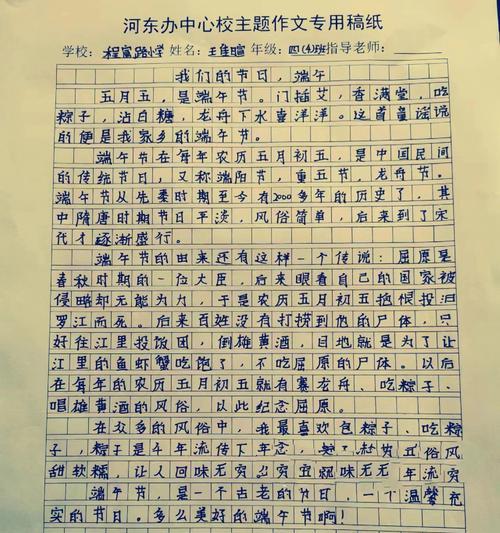 河东办中心校主题作文专用稿纸
学校：程富路小学 姓名：王佳暄 年级：四(4)班 指导老师：
我们的节日，端午
五月五，是端午节。门插艾，香满堂，吃
粽子，沾白糖，龙舟下水喜洋洋。这首童谣说
的便是我家乡的端午节。
端午节在每年农历五月初五，是中国民间
的传统节日，又称端阳节，重五节，龙舟节。
端午节从先秦时期至今有2000多年的历史了，其
中隋唐时期节日平淡，风俗简单，后来到了宋
代才逐渐盛行。
端午节的由来还有这样一个传说：屈原是
春秋时期的一位大臣，后来眼看自己的国家被
侵略却无能为力，于是农历五月初五抱恨投汨
罗江而死。后来百姓没有打捞到他的尸体，只
好在江里投饭团，倒雄黄酒，目地就是为了让
江里的鱼虾蟹吃饱了，不吃屈原的尸体。以后
在每年的农历五月初五就有赛龙舟、吃粽子、
喝雄黄酒的风俗，以此纪念屈原。
在众多的风俗中，我最喜欢包粽子、吃粽
子，粽子是 年流传下 五俗风
甜软糯，让人回味无穷 穷宜就味无无 年流穷
端午节，是一个古老的节日，一个温馨充
实的节日。多么美好的端午节啊！